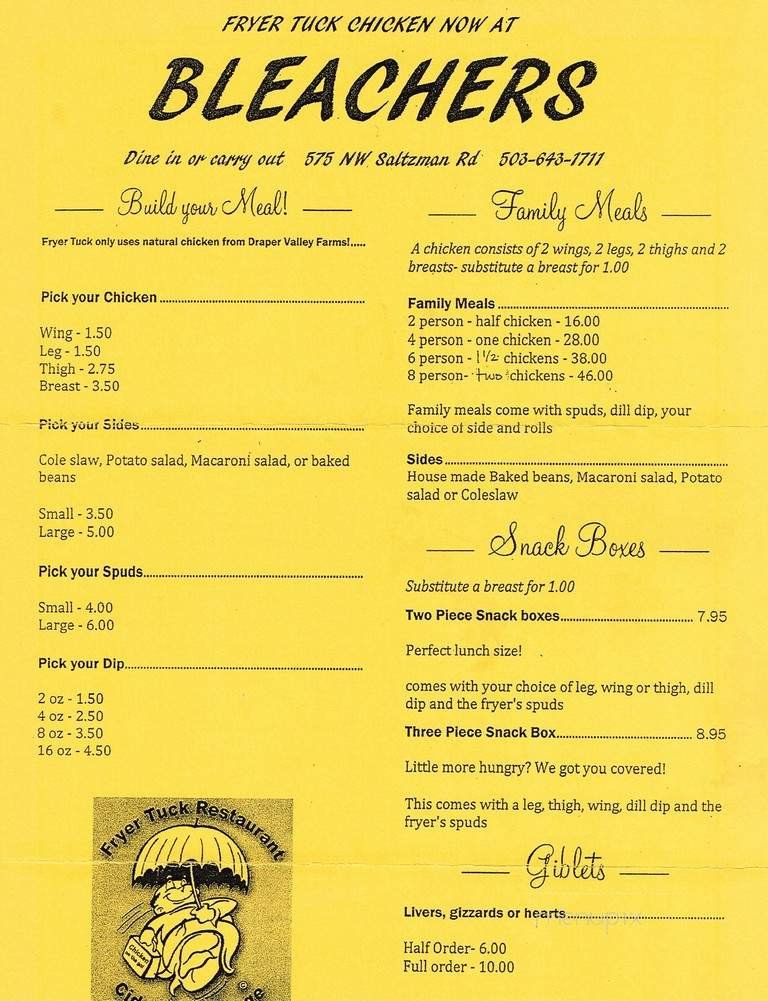 FRYER TUCK CHICKEN NOW AT
BLEACHERS
Dine in or carry out 575 NW Saltzman Rd 503-643-1711
Build your Meal!
Fryer Tuck only uses natural chicken from Draper Valley Farms!.....
Pick your Chicken
Wing - 1.50
Leg - 1.50
Thigh - 2.75
Breast - 3.50
Pick your Sides
Cole slaw, Potato salad, Macaroni salad, or baked
beans
Small - 3.50
Large - 5.00
Pick your Spuds
Small - 4.00
Large - 6.00
Pick your Dip
2 oz - 1.50
4 oz - 2.50
8 oz - 3.50
16 oz - 4.50
Fryer Tuck Restaurant
Chicken
on the go!
©
Family Meals
A chicken consists of 2 wings, 2 legs, 2 thighs and 2
breasts- substitute a breast for 1.00
Family Meals
2 person - half chicken - 16.00
4 person - one chicken - 28.00
6 person - 1 1/2 chickens - 38.00
8 person- two chickens - 46.00
Family meals come with spuds, dill dip, your
choice of side and rolls
Sides
House made Baked beans, Macaroni salad, Potato
salad or Coleslaw
Snack Boxes
Substitute a breast for 1.00
Two Piece Snack boxes 7.95
Perfect lunch size!
comes with your choice of leg, wing or thigh, dill
dip and the fryer's spuds
Three Piece Snack Box 8.95
Little more hungry? We got you covered!
This comes with a leg, thigh, wing, dill dip and the
fryer's spuds
Giblets
Livers, gizzards or hearts
Half Order- 6.00
Full order - 10.00